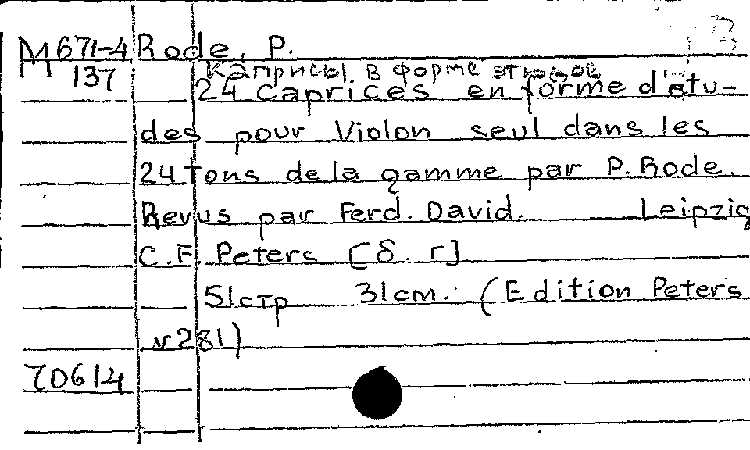 М671-4 Rode, P.
М 137 Каприсы. В форме этюдов
24 Caprices en forme d'étu-
des pour Violon seul dans les
24 Tons de la gamme par P. Rode.
Revus par Ferd. David. Leipzig
C. F. Peters [б. г]
51стр 31см. (Edition Peters
N281)
70614